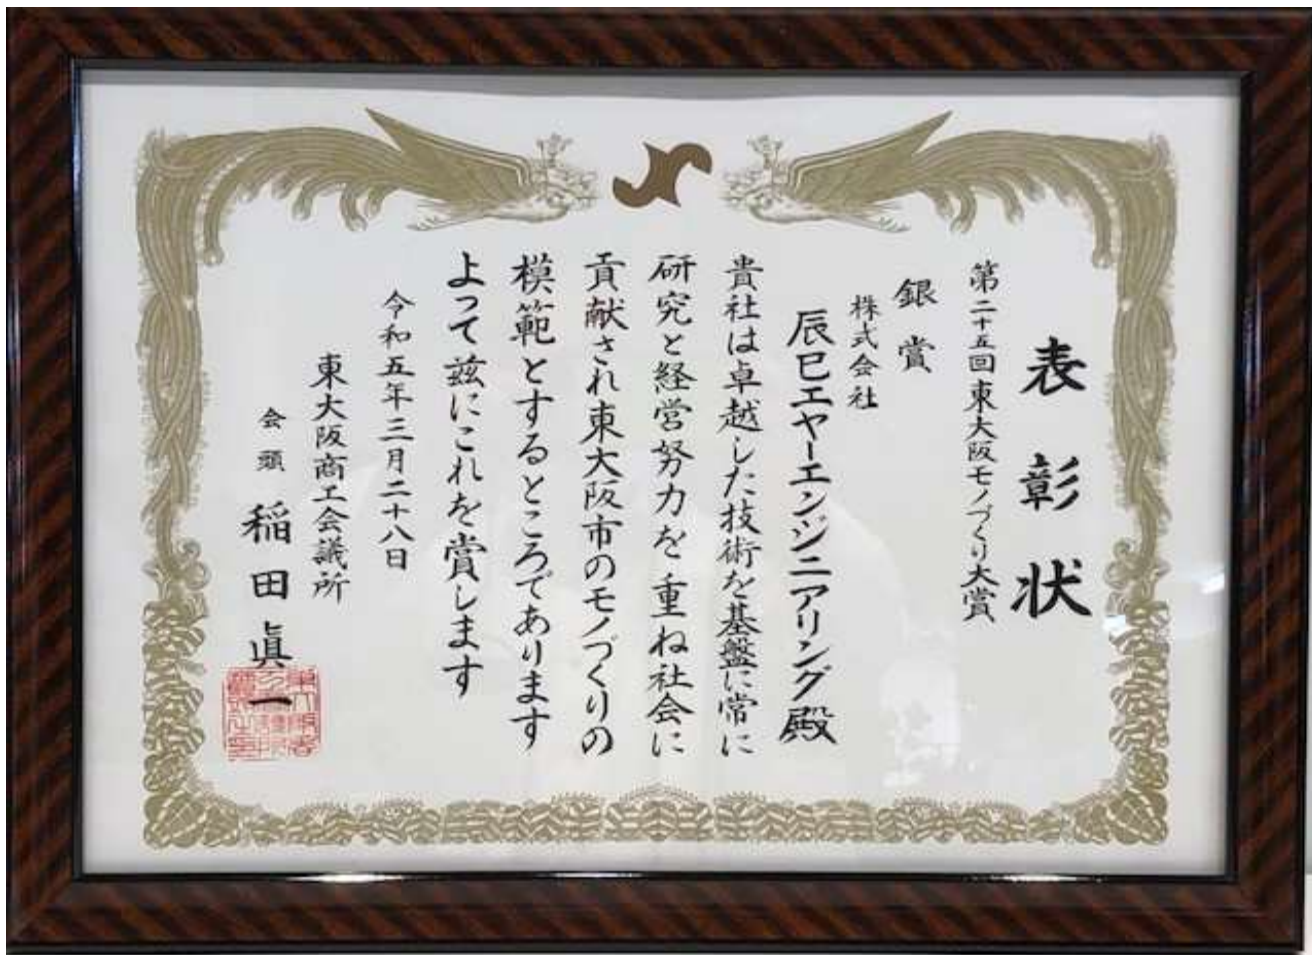 表彰状
第二十五回東大阪モノづくり大賞
銀賞
株式会社
辰巳エヤーエンジニアリング殿
貴社は卓越した技術を基盤に常に
研究と経営努力を重ね社会に
貢献され東大阪市のモノづくりの
模範とするところであります
よって茲にこれを賞します
令和五年三月二十八日
東大阪商工会議所
会頭 稲田眞一